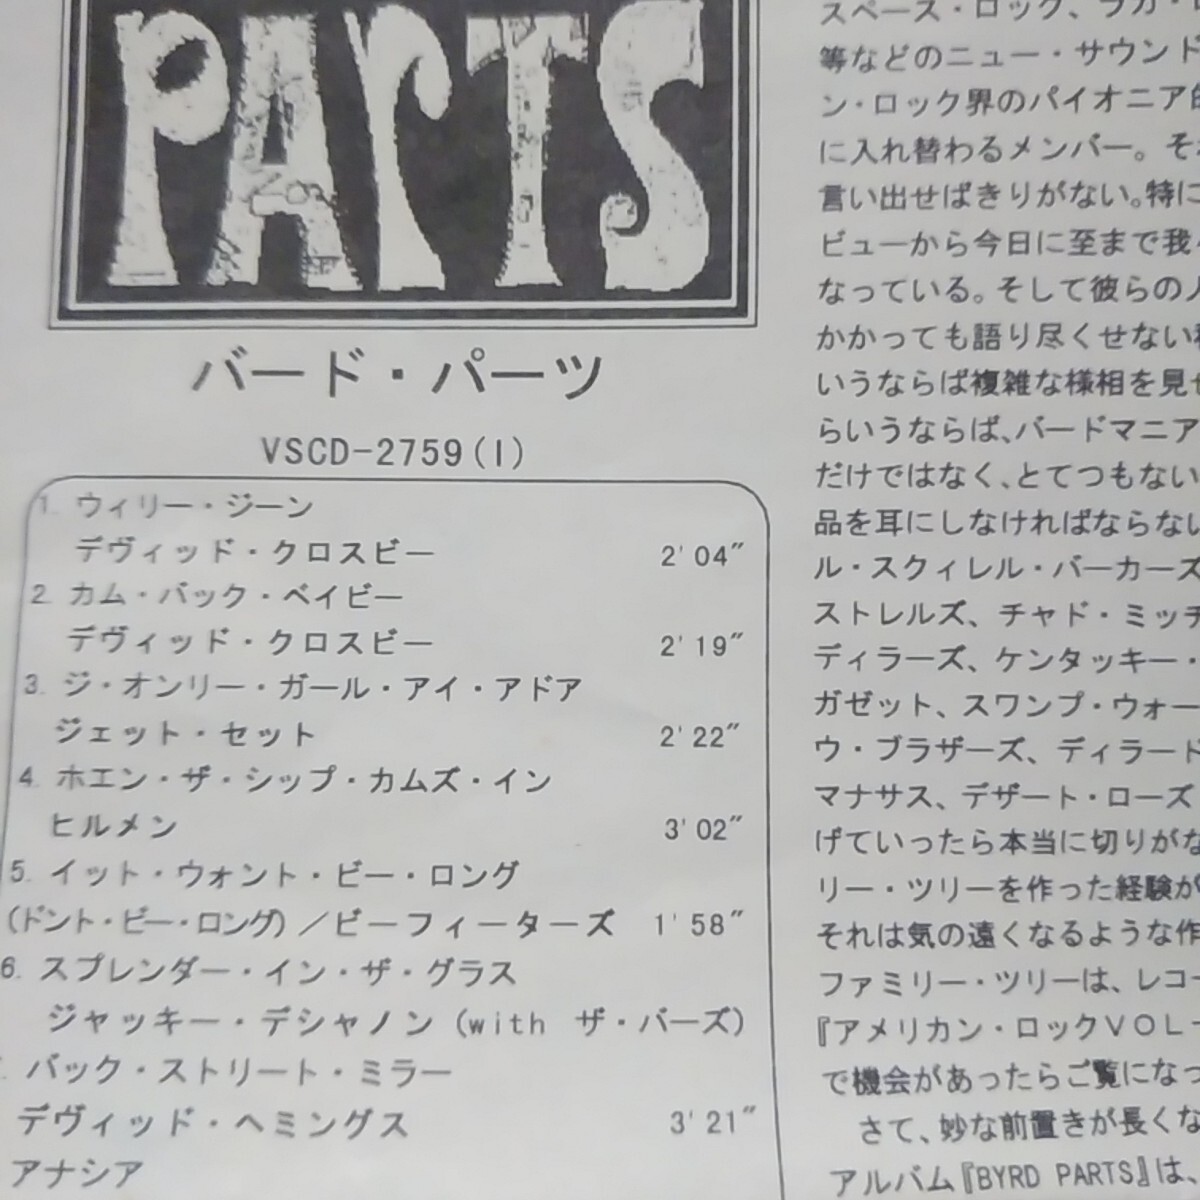 PARTS
バード・パーツ
VSCD-2759(I)
1. ウィリー・ジーン
デヴィッド・クロスビー 2'04"
2. カム・バック・ベイビー
デヴィッド・クロスビー 2'19"
3. ジ・オンリー・ガール・アイ・アドア
ジェット・セット 2'22"
4. ホエン・ザ・シップ・カムズ・イン
ヒルメン 3'02"
5. イット・ウォント・ビー・ロング
(ドント・ビー・ロング)／ビーフィーターズ 1'58"
6. スプレンダー・イン・ザ・グラス
ジャッキー・デシャノン(with ザ・バーズ)
バック・ストリート・ミラー
デヴィッド・ヘミングス 3'21"
アナシア
スペース・ロック、ラガ・
等などのニュー・サウンド
ン・ロック界のパイオニア的
に入れ替わるメンバー。それ
言い出せばきりがない。特に
ビューから今日に至まで我々
なっている。そして彼らの人
かかっても語り尽くせない
いうならば複雑な様相を見せ
らいうならば、バードマニア
だけではなく、とてつもない
品を耳にしなければならない
ル・スクィレル・バーカーズ
ストレルズ、チャド・ミッチ
ディラーズ、ケンタッキー・
ガゼット、スワンプ・ウォー
ウ・ブラザーズ、ディラード
マナサス、デザート・ローズ
げていったら本当に切りがな
リー・ツリーを作った経験が
それは気の遠くなるような作
ファミリー・ツリーは、レコー
『アメリカン・ロックVOL
で機会があったらご覧になっ
さて、妙な前置きが長くな
アルバム『BYRD PARTS』は、